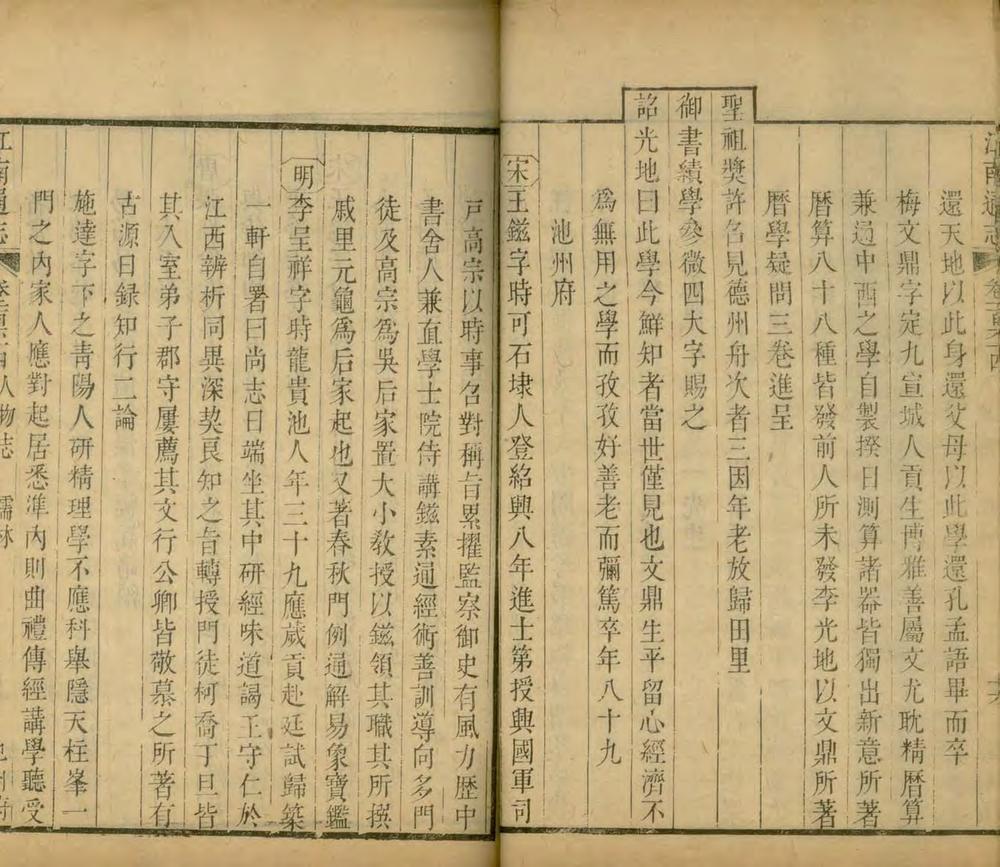 江南通志
還天地以此身還父母以此學還孔孟語畢而卒
梅文鼎字定九宣城人貢生博雅善屬文尤耽精曆算
兼通中西之學自製揆日測算諸器皆獨出新意所著
曆算八十八種皆發前人所未發李光地以文鼎所著
曆學疑問三卷進呈
聖祖獎許召見德州舟次者三因年老放歸田里
御書績學參微四大字賜之
詔光地曰此學今鮮知者當世僅見也文鼎生平留心經濟不
爲無用之學而孜孜好善老而彌篤卒年八十九
池州府
宋王鎡字時可石埭人登紹興八年進士第授興國軍司
戸高宗以時事召對稱旨累擢監察御史有風力歷中
書舍人兼直學士院侍講鎡素通經術善訓導向多門
徒及高宗爲吳后家置大小教授以鎡領其職其所撰
戚里元龜爲后家起也又著春秋門例通解易象寶鑑
明李呈祥字時龍貴池人年三十九應歲貢赴廷試歸築
一軒自署曰尚志日端坐其中研經味道謁王守仁於
江西辨析同異深契良知之旨轉授門徒柯喬丁旦皆
其入室弟子郡守屢薦其文行公卿皆敬慕之所著有
古源日録知行二論
施達字下之靑陽人研精理學不應科舉隱天柱峯一
門之內家人應對起居悉準內則曲禮傳經講學聽受
江南通志 人物志 儒林